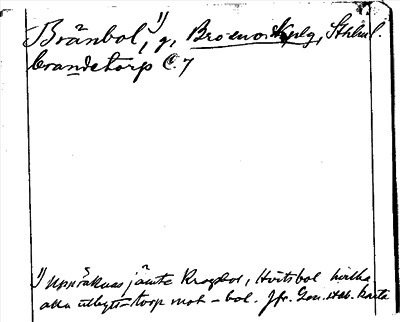 Bränbol,¹⁾ g, Bro sn o. skplg, Sthlm l.
brandetorp C. 7
¹⁾ Uppräknas jämte Kragbol, Hvitsbol hvilka
alla utbytt -torp mot -bol. Jfr. Gen. stab. karta